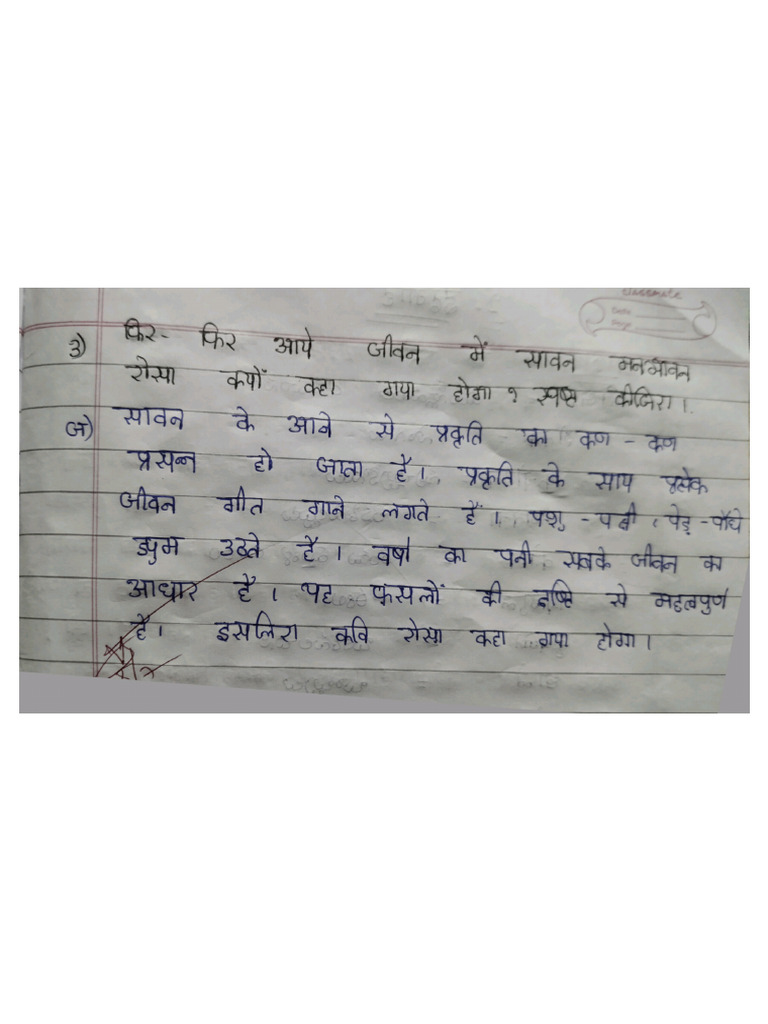 classmate
Date
Page
3) फिर - फिर आये जीवन में सावन मनभावन
रोसा क्यों कहा गया होगा ? स्पष्ट कीजिरा।
ज) सावन के आने से प्रकृति का कण - कण
प्रसन्न हो जाता है। प्रकृति के साथ प्रत्येक
जीवन गीत गाने लगते हैं। पशु - पक्षी, पेड़ - पौधे
झुम उठते है। वर्षा का पनी सबके जीवन का
आधार है। यह फ़सलों की दृष्टि से महत्वपुर्ण
है। इसलिरा कवि रोसा कहा गया होगा।